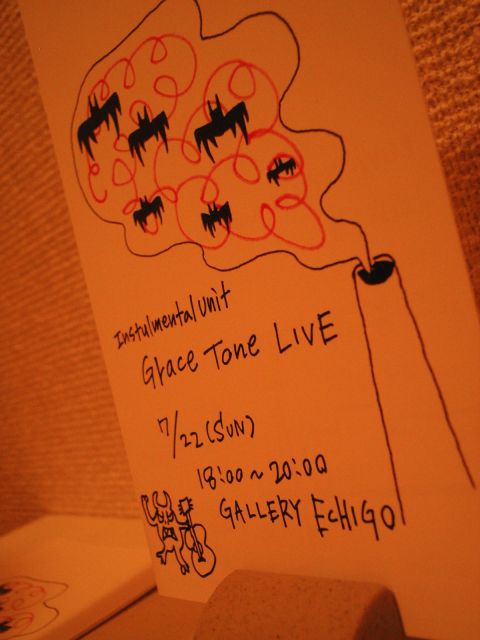 Instulmental unit
Grace Tone LIVE
7/22 (SUN)
18:00 ~ 20:00
GALLERY ECHIGO